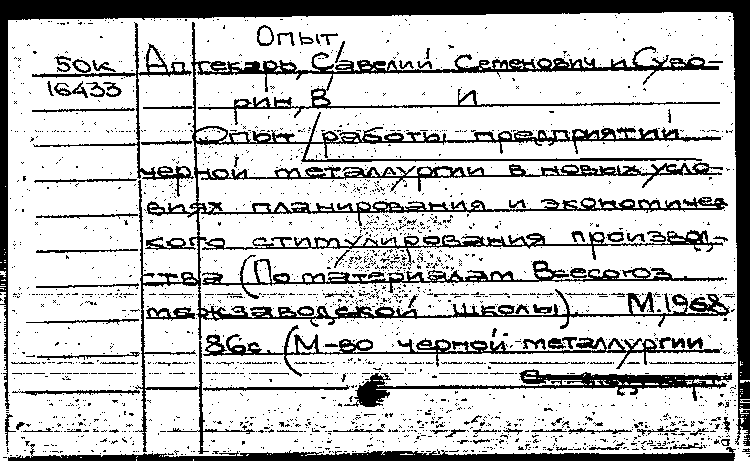 Опыт
50к Аптекарь, Савелий Семенович и Суво-
16433 рин, В И
Опыт работы предприятий
черной металлургии в новых усло-
виях планирования и экономичес
кого стимулирования производ-
ства (По материалам Всесоюз.
межзаводской школы). М, 1968
86с. (М-во черной металлургии